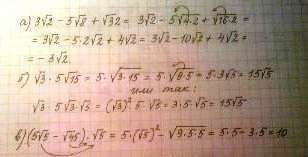 а) 3√2 - 5√8 + √32 = 3√2 - 5√4·2 + √16·2 =
= 3√2 - 5·2√2 + 4√2 = 3√2 - 10√2 + 4√2 =
= -3√2.
б) √3 · 5√15 = 5·√3·15 = 5·√9·5 = 5·3√5 = 15√5
или так:
√3 · 5√3·√5 = (√3)² · 5·√5 = 3·5·√5 = 15√5
в) (5√5 - √45)·√5 = 5·(√5)² - √9·5·5 = 5·5 - 3·5 = 10